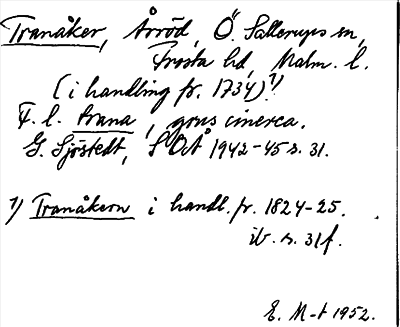 Tranåker, Årröd, Ö. Sallerups sn,
Frosta hd, Malm. l.
(i handling fr. 1734).¹⁾
F. l. trana, grus cinerea.
G. Sjöstedt, SOÅ 1942-45 s. 31.
1) Tranåkern i handl. fr. 1824-25.
ib. s. 31 f.
E. M-t 1952.